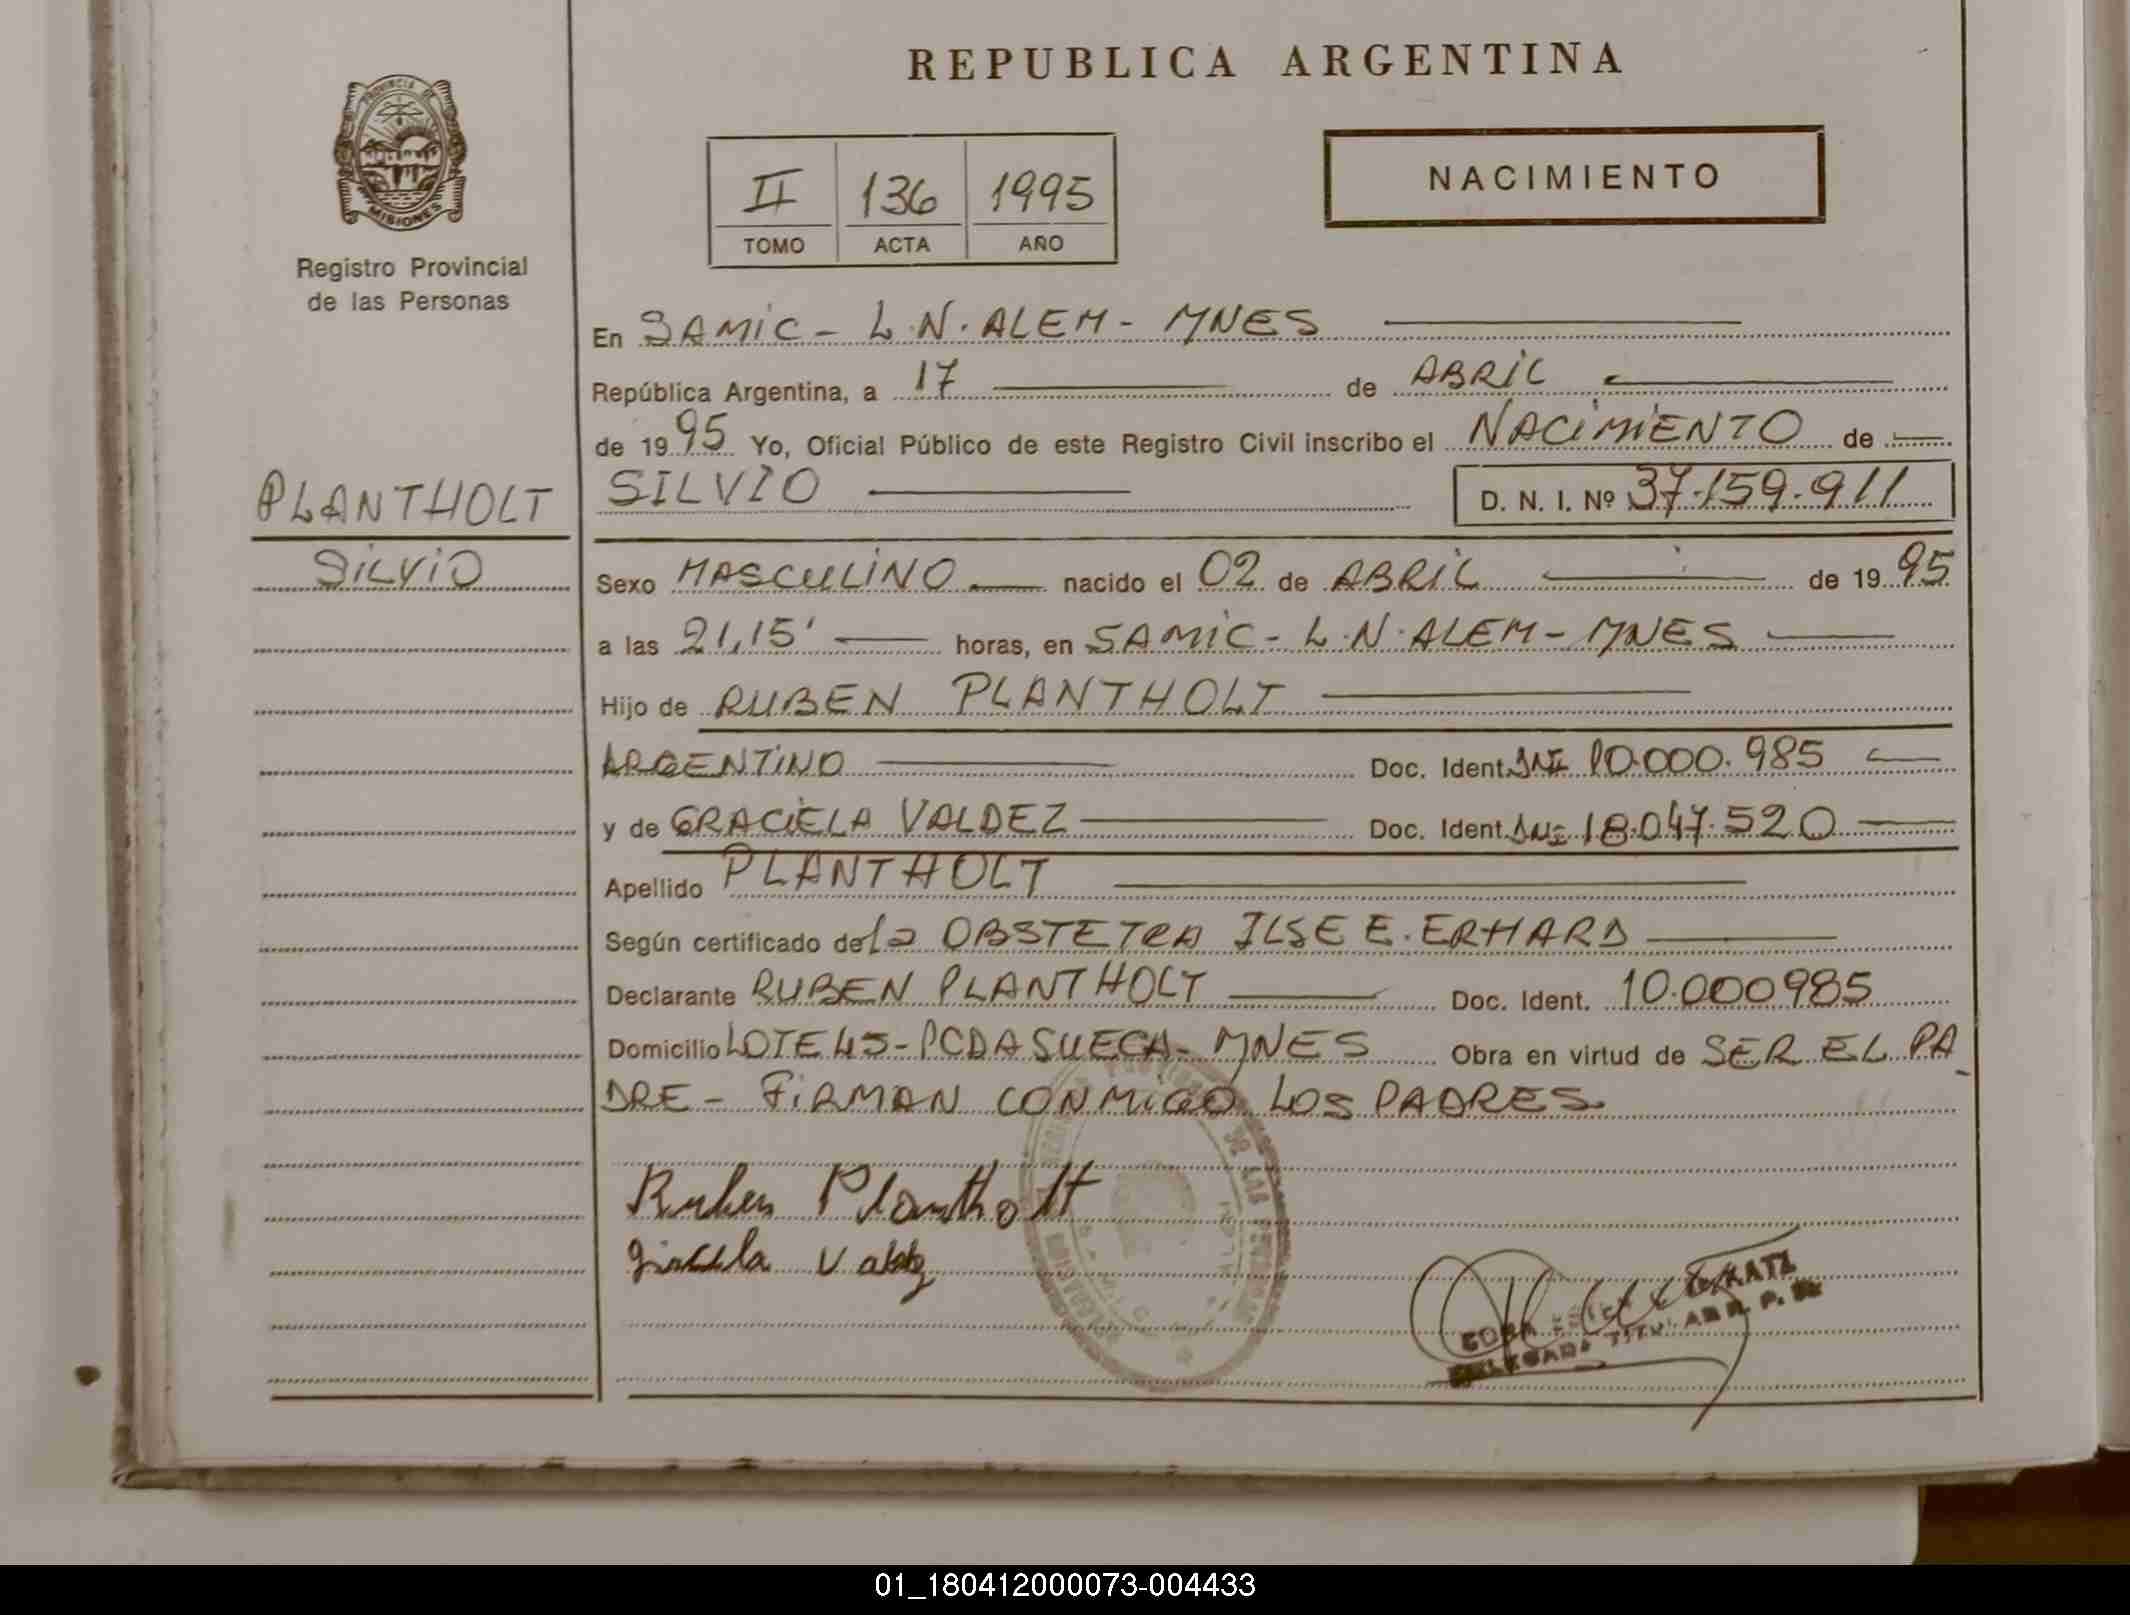 REPUBLICA ARGENTINA
PROVINCIA DE
MISIONES
Registro Provincial
de las Personas
II 136 1995
TOMO ACTA AÑO
NACIMIENTO
En SAMIC - L.N. ALEM - MNES
República Argentina, a 17 de ABRIL
de 1995 Yo, Oficial Público de este Registro Civil inscribo el NACIMIENTO de
PLANTHOLT
SILVIO
SILVIO D. N. I. Nº 37.159.911
Sexo MASCULINO nacido el 02 de ABRIL de 1995
a las 21,15' horas, en SAMIC - L.N. ALEM - MNES
Hijo de RUBEN PLANTHOLT
ARGENTINO Doc. Ident. DNI 10.000.985
y de GRACIELA VALDEZ Doc. Ident. DNI 18.047.520
Apellido PLANTHOLT
Según certificado de la OBSTETRA ILSE E. ERHARD
Declarante RUBEN PLANTHOLT Doc. Ident. 10.000985
Domicilio LOTE 45 - PCDA SUECA - MNES Obra en virtud de SER EL PA
DRE - FIRMAN CONMIGO LOS PADRES
Ruben Plantholt
DELEGADA TITULAR R. P.
01_180412000073-004433